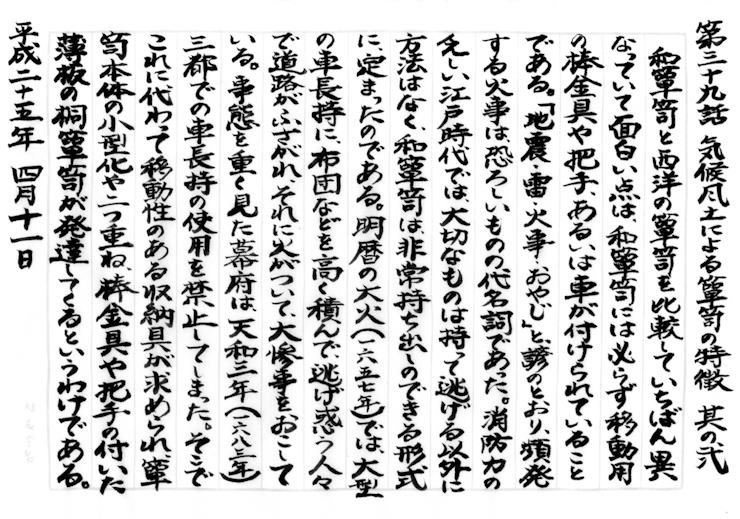 第三十九話 気候風土による簞笥の特徴 其の弐
和簞笥と西洋の簞笥を比較していちばん異
なっていて面白い点は、和簞笥には必らず移動用
の棒金具や把手、あるいは車が付けられていること
である。「地震・雷・火事・おやじ」と、諺のとおり、頻発
する火事は、恐ろしいものの代名詞であった。消防力の
乏しい江戸時代では、大切なものは持って逃げる以外に
方法はなく、和簞笥は、非常持ち出しのできる形式
に、定まったのである。明暦の大火(一六五七年)では、大型
の車長持に、布団などを高く積んで、逃げ惑う人々
で道路がふさがれ、それに火がついて、大惨事をおこして
いる。事態を重く見た幕府は、天和三年(一六八三年)
三都での車長持の使用を禁止してしまった。そこで
これに代わって移動性のある収納具が求められ、簞
笥本体の小型化や二つ重ね、棒金具や把手の付いた
薄板の桐簞笥が発達してくるというわけである。
平成二十五年 四月十一日